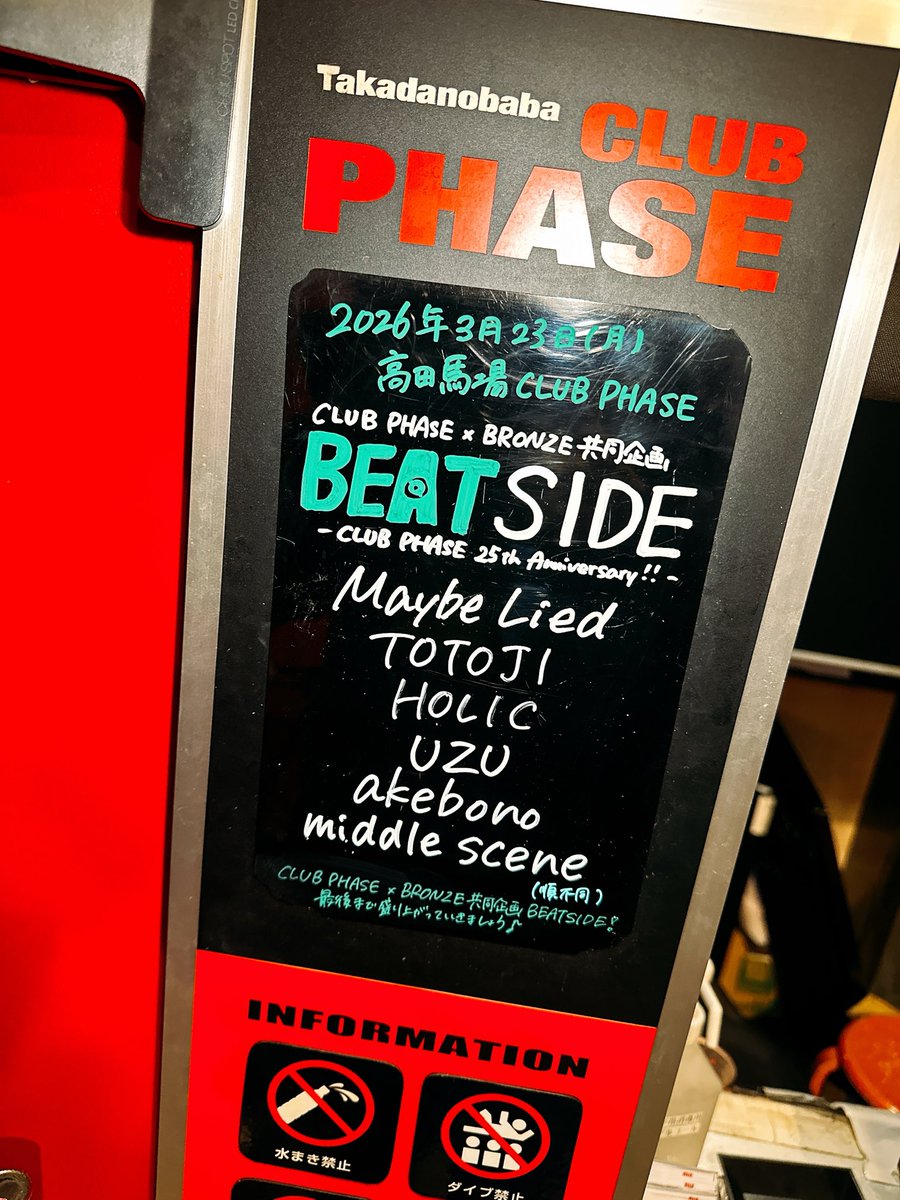 Takadanobaba
CLUB
PHASE
2026年3月23日(月)
高田馬場 CLUB PHASE
CLUB PHASE × BRONZE 共同企画
BEAT SIDE
- CLUB PHASE 25th Anniversary!! -
Maybe Lied
TOTOJI
HOLIC
UZU
akebono
middle scene
(順不同)
CLUB PHASE × BRONZE 共同企画 BEATSIDE!
最後まで盛り上がっていきましょう♪
INFORMATION
水まき禁止
ダイブ禁止